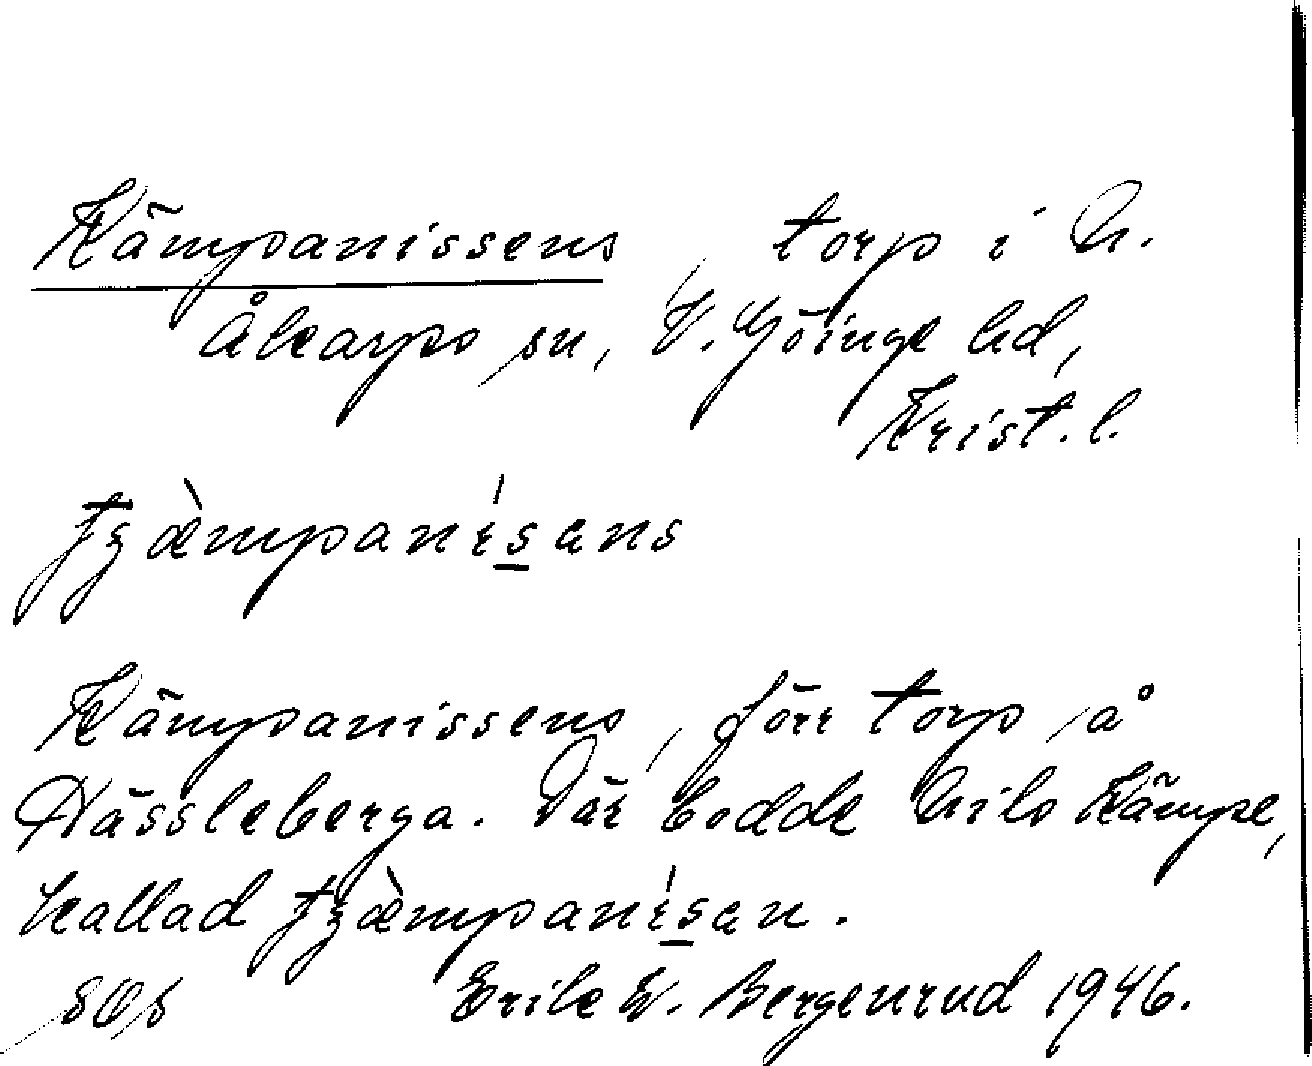 Kämpanissens, torp i N.
Åkarps sn, V. Göinge hd,
Krist. l.
Kämpanissens, förr torp å
Hässleberga. Där bodde Nils Kämpe,
kallad
Erik W. Bergenrud 1946.